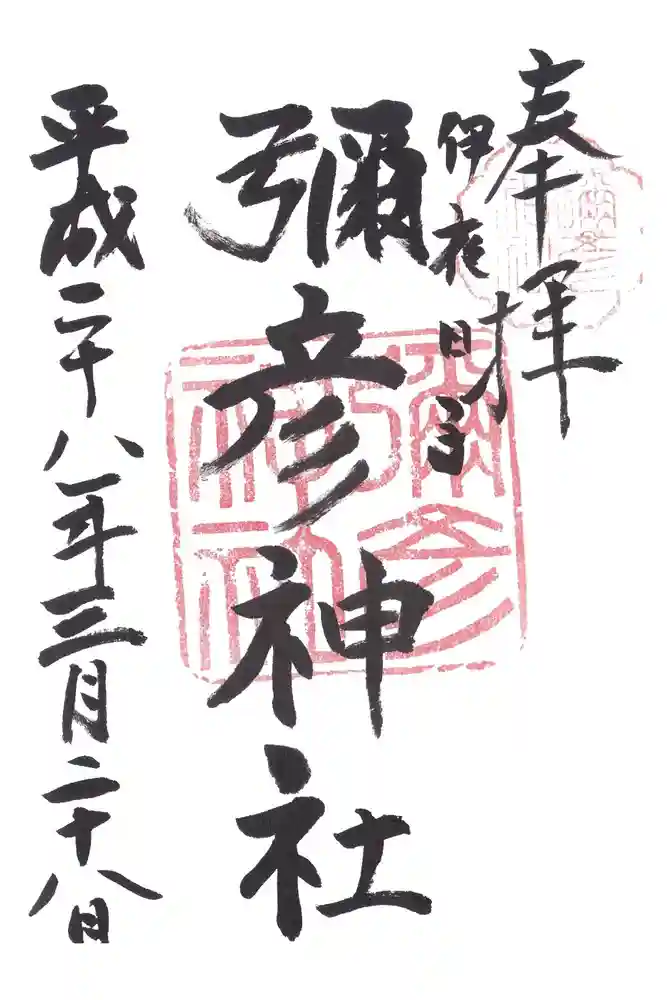 奉拝
伊夜日子
彌彦神社
平成二十八年三月二十八日
彌彦
神社